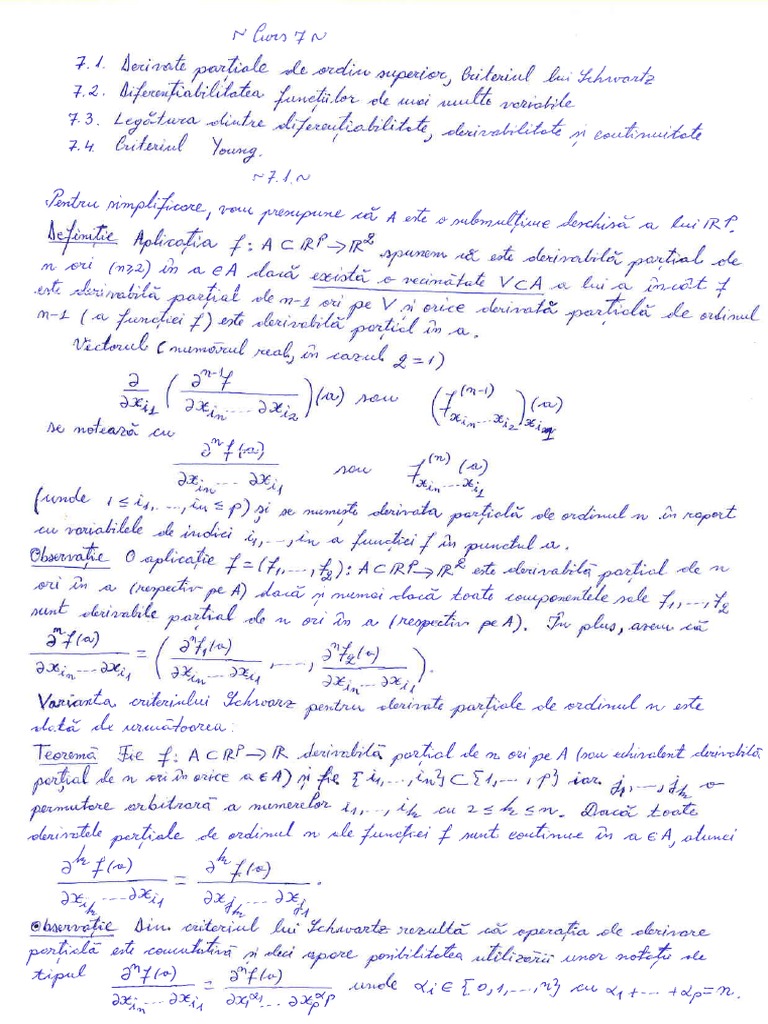 ~ Curs 7 ~
7.1. Derivate parțiale de ordin superior, Criteriul lui Schwartz
7.2. Diferențiabilitatea funcțiilor de mai multe variabile
7.3. Legătura dintre diferențiabilitate, derivabilitate și continuitate
7.4. Criteriul Young.
~7.1.~
Pentru simplificare, vom presupune că A este o submulțime deschisă a lui ℝᵖ.
Definiție Aplicația f: A⊂ℝᵖ→ℝ^q spunem că este derivabilă parțial de
n ori (n≥2) în a∈A dacă există o vecinătate V⊂A a lui a încât f
este derivabilă parțial de n-1 ori pe V și orice derivată parțială de ordinul
n-1 (a funcției f) este derivabilă parțial în a.
Vectorul (numărul real, în cazul q=1)
∂/∂x_{i_1} (∂^{n-1}f / ∂x_{i_n}...∂x_{i_2})(a) sau (f^{(n-1)}_{x_{i_n}...x_{i_2}})_{x_{i_1}}(a)
se notează cu
∂ⁿf(a) / ∂x_{i_n}...∂x_{i_1} sau f^{(n)}_{x_{i_n}...x_{i_1}}(a)
(unde 1≤i_1,...,i_n≤p) și se numește derivata parțială de ordinul n în raport
cu variabilele de indici i_1,...,i_n a funcției f în punctul a.
Observație O aplicație f=(f_1,...,f_q): A⊂ℝᵖ→ℝ^q este derivabilă parțial de n
ori în a (respectiv pe A) dacă și numai dacă toate componentele sale f_1,...,f_q
sunt derivabile parțial de n ori în a (respectiv pe A). În plus, avem că
∂ⁿf(a) / ∂x_{i_n}...∂x_{i_1} = (∂ⁿf_1(a) / ∂x_{i_n}...∂x_{i_1}, ..., ∂ⁿf_q(a) / ∂x_{i_n}...∂x_{i_1}).
Varianta criteriului Schwarz pentru derivate parțiale de ordinul n este
dată de următoarea:
Teoremă Fie f: A⊂ℝᵖ→ℝ derivabilă parțial de n ori pe A (sau echivalent derivabilă
parțial de n ori în orice a∈A) și fie {i_1,...,i_n}⊂{1,...,p} iar j_1,...,j_k o
permutare arbitrară a numerelor i_1,...,i_k cu 2≤k≤n. Dacă toate
derivatele parțiale de ordinul n ale funcției f sunt continue în a∈A, atunci
∂ᵏf(a) / ∂x_{i_k}...∂x_{i_1} = ∂ᵏf(a) / ∂x_{j_k}...∂x_{j_1}.
Observație Din criteriul lui Schwartz rezultă că operația de derivare
parțială este comutativă și deci apare posibilitatea utilizării unor notații de
tipul ∂ⁿf(a) / ∂x_{i_n}...∂x_{i_1} = ∂ⁿf(a) / ∂x_1^{α_1}...∂x_p^{α_p} unde α_i∈{0,1,...,n} cu α_1+...+α_p=n.